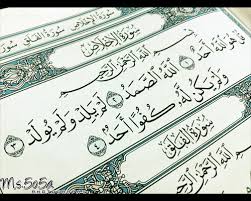 سورة الإخلاص سورة الفلق سورة
سُورَةُ الإِخْلَاصِ
بِسْمِ اللَّهِ الرَّحْمَٰنِ الرَّحِيمِ
قُلْ هُوَ اللَّهُ أَحَدٌ ١ اللَّهُ الصَّمَدُ ٢ لَمْ يَلِدْ وَلَمْ يُولَدْ ٣
وَلَمْ يَكُن لَّهُ كُفُوًا أَحَدٌ ٤
سُورَةُ الفَلَقِ
بِسْمِ اللَّهِ الرَّحْمَٰنِ
Ms.5o5a